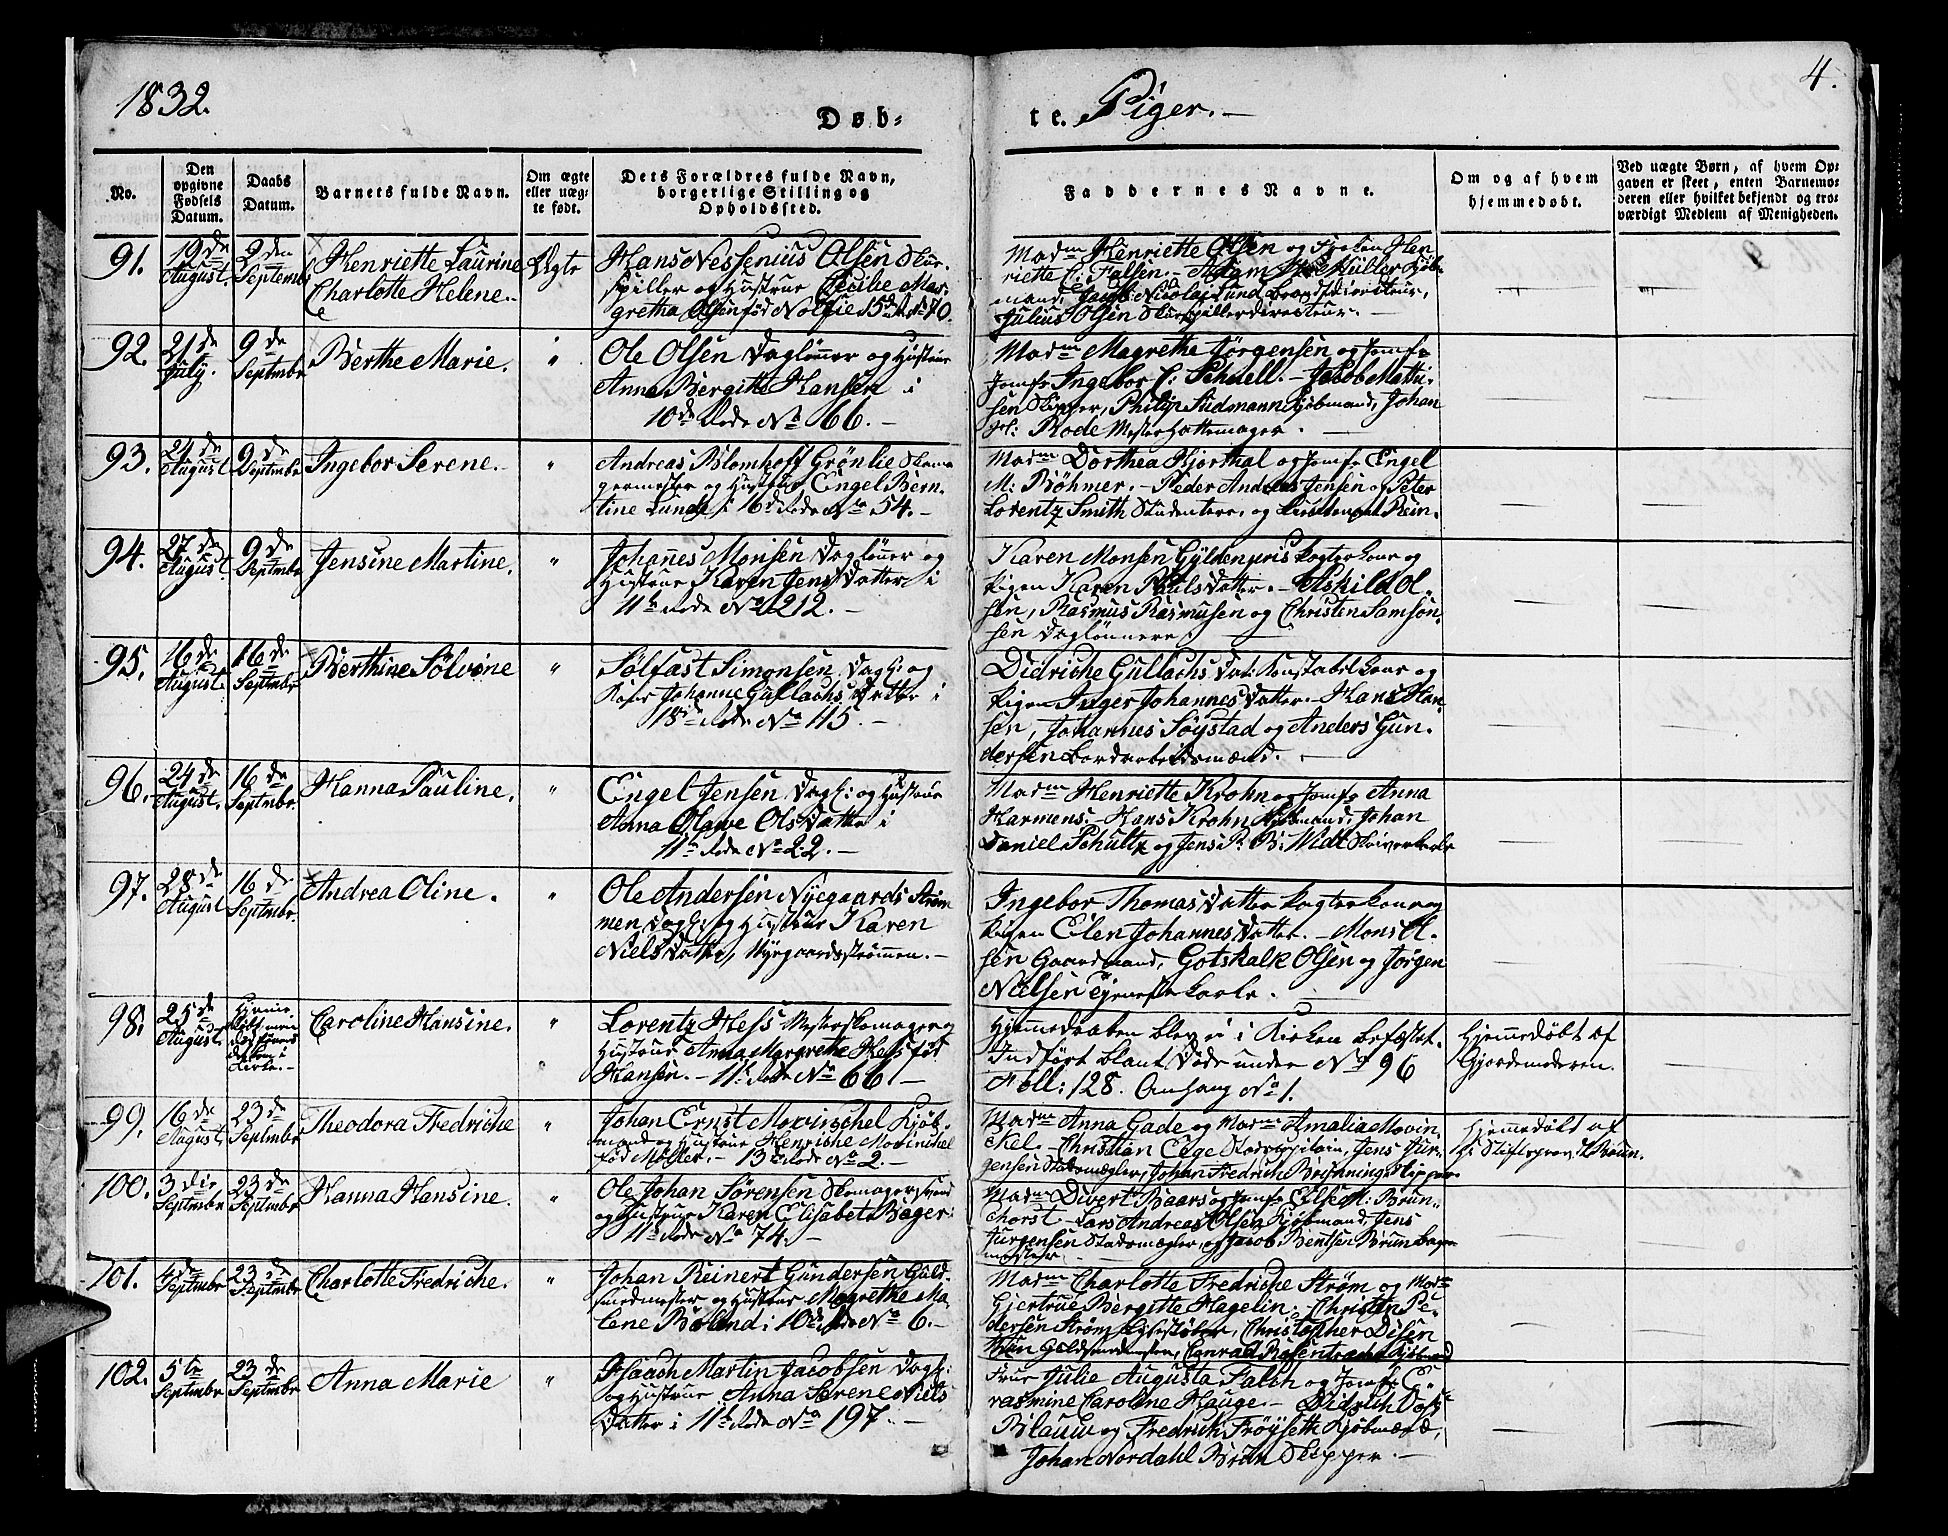 1832.
Døb-
te. Piger.
4.
No.
Den opgivne Fødsels Datum.
Daabs Datum.
Barnets fulde Navn.
Om ægte eller uægte født.
Dets Forældres fulde Navn, borgerlige Stilling og Opholdssted.
Faddernes Navne.
Om og af hvem hjemmedøbt.
Ved uægte Børn, af hvem Opgaven er skeet, enten Barnemoderen eller hvilket bekjendt og troværdigt Medlem af Menigheden.
91. 19de August. 2den Septembr Henriette Laurine Charlotte Helene. Ægte
Hans Nessenius Olsen Skue-
spiller og Hustrue Cecilie Mar-
gretha Olsen fød
Madm Henriette Olsen og Frøken Hen
riette C: Falsen. - Adam Müller Kjøb-
mand, Nicolai Lund
Julius Olsen Skuespillerdirecteur. -
92. 21de July. 9de Septembr Berthe Marie. "
Ole Olsen Dagløner og Hustrue
Anne Bergitte Hansen i
10de Rode No 66. -
Madm Magrethe Jørgensen og Jomfr
Jomfr Ingebor C: Schnell. - Jacob Mathi-
sen Skipper, Philip Kjøbmand, Johan
Rode Mester Hattemager.
93. 24de August. 9de Septembr Ingebor Serene. "
Andreas Blomhoff Grønlie Skoma
germester og Hustrue Engel Bern-
tine Lunde i 16de Rode No 54. -
Madm Dorthea Hjorthal og Jomfr Engel
M: Bøhmer. - Peder Andreas Jensen og Peter
Lorentz Smith Studentere, og Lieutenant Rein.
94. 27de August. 9de Septembr Jensine Martine. "
Johannes Monsen Dagløner og
Hustrue Karen Jens Datter i
11te Rode No 212. -
Karen Monsen Gyldenpris Kone og
Pigen Karen Pouls Datter. - Askild Ol-
sen, Rasmus Rasmusen og Christen Samson-
sen Daglønnere
95. 16de August. 16de Septembr Berthine Sølvine "
Sølfast Simonsen Dagl: og
Kone Johanne Gullachs Datter i
18de Rode No 115. -
Didriche Gullachs Dat: Konstabel Kone og
Pigen Inger Johannes Datter. - Hans Han-
sen, Johannes Søystad og Anders Gun-
dersen Bordarbeidsmænd. -
96. 24de August. 16de Septembr. Hanna Pauline. "
Engel Jensen Dagl: og Hustrue
Anna Olave Ols Datter i
11te Rode No 22. -
Madm Henriette Krohn og Jomfr Anna
Harmens. - Hans Krohn Kjøbmand, Johan
Daniel Schultz og Jens P: B: Widt Skriverkarle
97. 28de August 16de Septembr. Andrea Oline. "
Ole Andersen Nyegaards Strøm
men Dagl: og Hustrue Karen
Niels Datter, Nyegaardsstrømmen. -
Ingebor Thomas Datter Kone og
Pigen Elen Johannes Datter. - Mons Ol-
sen Gaardmand, Gotskalk Olsen og Jørgen
Nielsen Tjeneste Karle.
98. 25de August. Caroline Hansine. "
Lorentz Hess Mesterskomager og
Hustrue Anna Margrethe Hess fød
Hansen. - 11te Rode No 66. -
Hjemmedaaben blev ei i Kirken befæstet.
Indført blant Døde under No 96
Foll: 128. Anhang No 1.
Hjemmedøbt af
Gjordemoderen.
99. 16de August 23de Septembr Theodora Fredriche "
Johan Ernst Mowinchel Kjøb-
mand og Hustrue Henriche Mowinchel
fød Møller. - 13de Rode No 2. -
Madm Anna Gade og Madm Amalia Mowin-
ckel. - Christian Ege Stadscapitain, Jens Jür-
gensen Stadsmægler, Johan Fredrich Skipper.
Hjemmedøbt af
Stiftsprov. Bruun.
100. 3die Septembr 23de Septembr Hanna Hansine. "
Ole Johan Sørensen Skomagersvend
og Hustrue Karen Elisabeth Bøger.
11te Rode No 74. -
Madm Divert Baars og Jomfr M: Brün-
chorst - Lars Andreas Olsen Kjøbmand, Jens
Jürgensen Stadsmægler, og Jacob Bentsen Brun Bager
mester.
101. 4de Septembr 23de Septembr Charlotte Fredriche. "
Johan Reinert Gundersen Guld-
smedmester og Hustrue Magrethe Ma-
lene i 10de Rode No 6. -
Madm Charlotte Fredriche Strøm og Madm
Gjertrue Bergitte Hagelin. - Christen Pe-
dersen Strøm, Christopher Disen
Brun Guldsmedmester, Conrad Kjøbmand
102. 5te Septembr 23de Septembr Anna Marie "
Isaach Martin Jacobsen Dagl:
og Hustrue Anna Serene Niels
Datter i 11te Rode No 197. -
Frue Julie Augusta Falch og Jomfr E-
rasmine Caroline Hauge. - Didrich
Blauw og Fredrich Frøyseth Kjøbmænd,
Johan Nordahl Brun Skipper. -